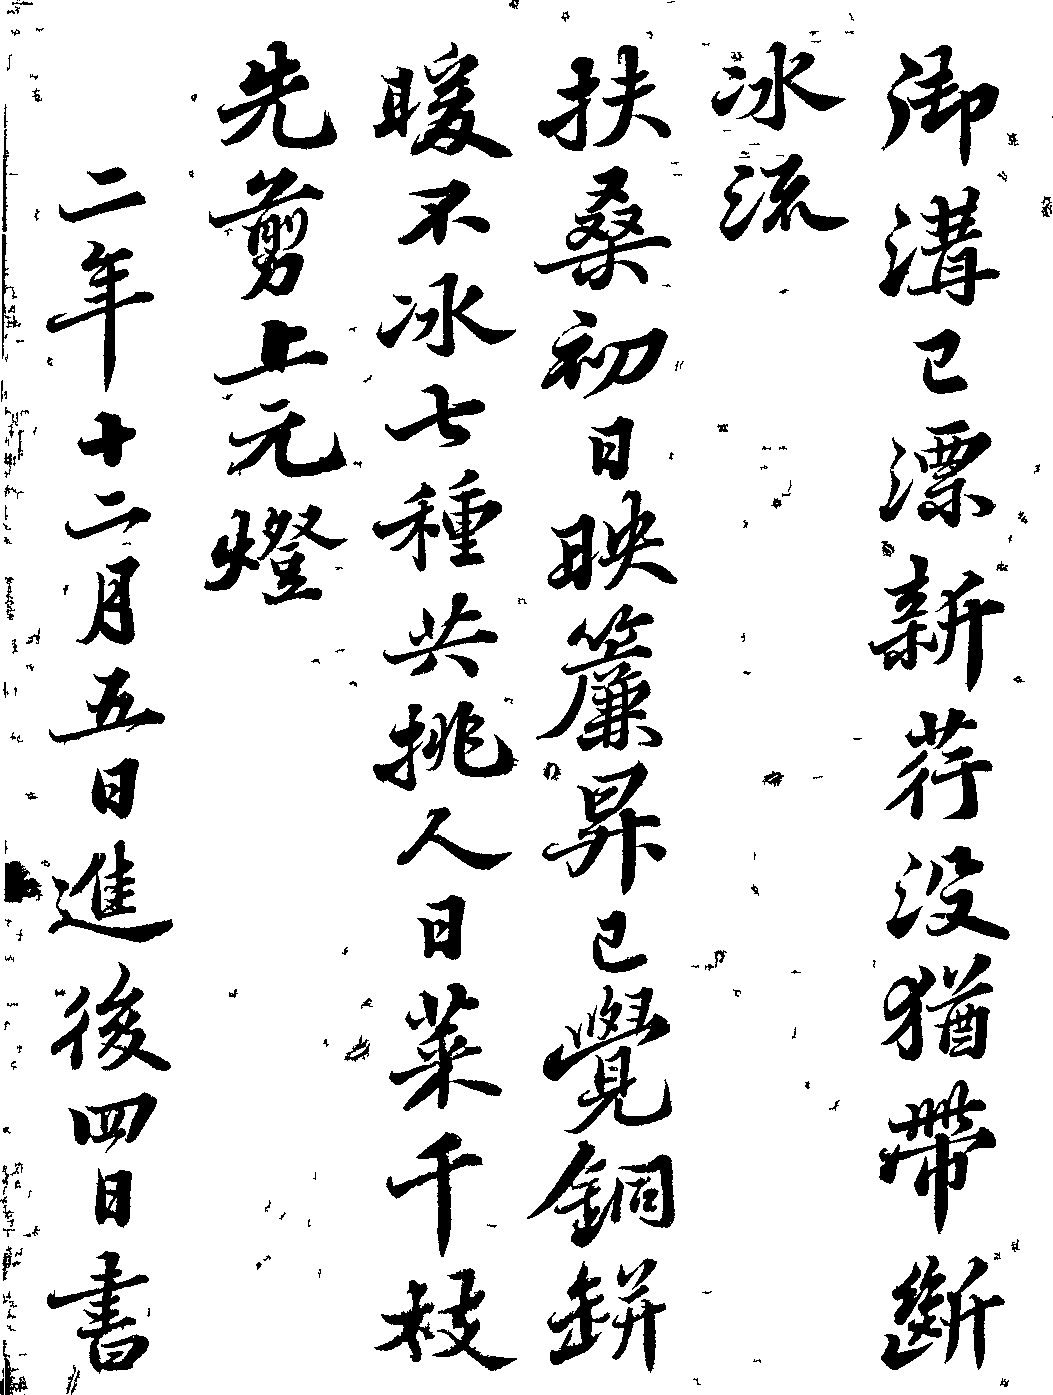 御溝已漂新荇没猶帶斷
冰流
扶桑初日映簾昇已覺銅缾
暖不冰七種共挑人日菜千枝
先剪上元燈
二年十二月五日進後四日書